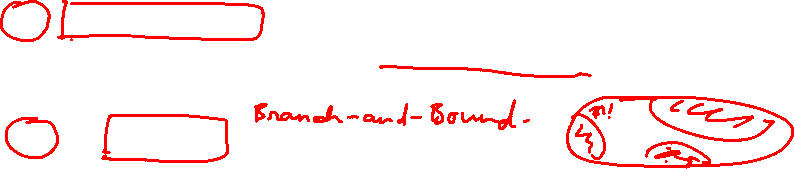 Branch-and-Bound.
n!